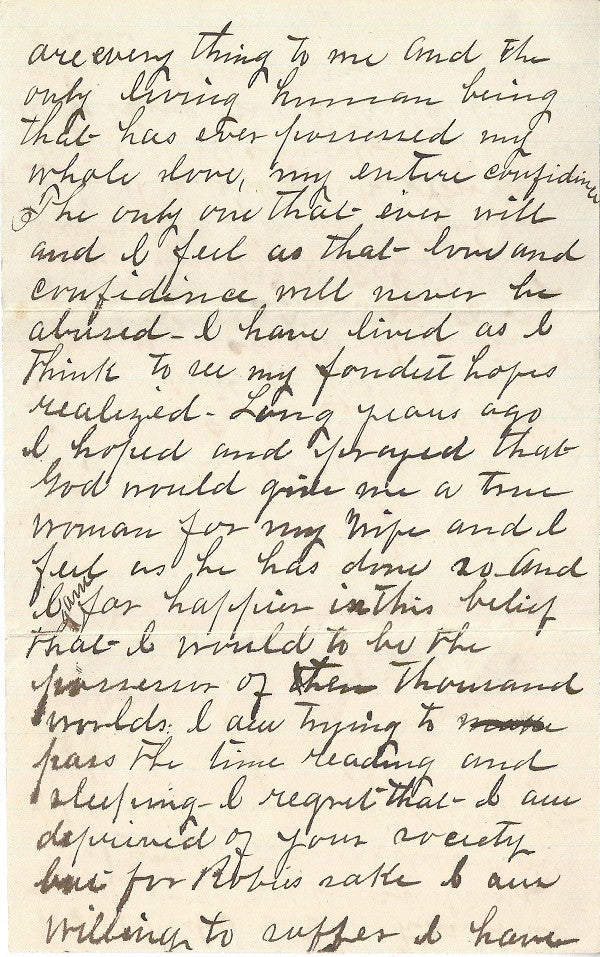 are every thing to me and the
only living human being
that has ever possessed my
whole love, my entire confidince
The only one that ever will
and I feel as that love and
confidince will never be
abused - I have lived as I
think to see my fondest hopes
realized - Long years ago
I hoped and prayed that
God would give me a true
woman for my Wife and I
feel as he has done so and
I am far happier in this belief
that I would to be the
possessor of then thousand
worlds. I am trying to
pass the time reading and
sleeping - I regret that I am
deprived of your society
but for Robies sake I am
willing to suffer I have